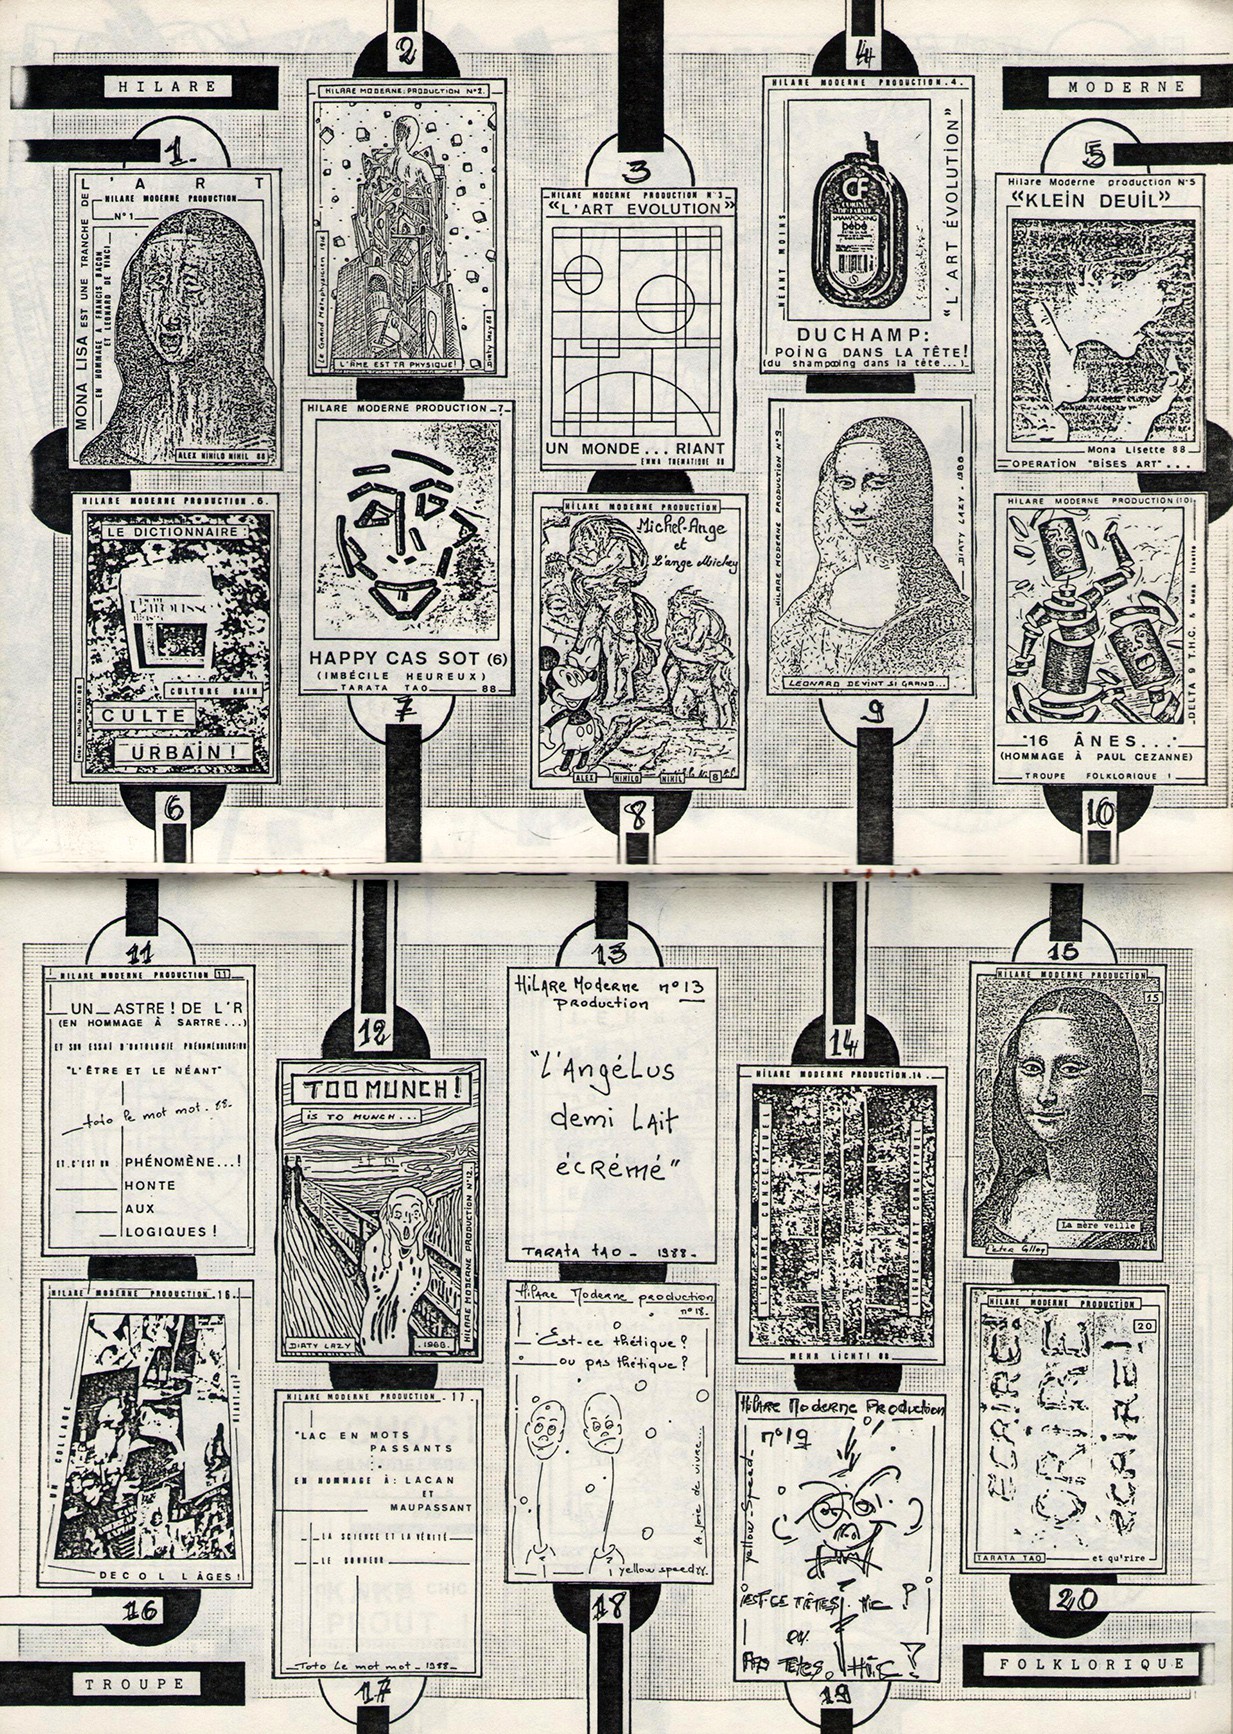 HILARE
MODERNE
1
L'ART
HILARE MODERNE PRODUCTION
N°1
MONA LISA EST UNE TRANCHE DE
EN HOMMAGE A FRANCIS BACON
ET LEONARD DE VINCI
ALEX NIHILO NIHIL 88
2
HILARE MODERNE PRODUCTION N°2.
Le Grand Metaphysicien
L'ÂME EST TA PHYSIQUE!
Dirty Lazy 88
3
HILARE MODERNE PRODUCTION N°3
"L'ART EVOLUTION"
UN MONDE... RIANT
EMMA THEMATIQUE 88
4
HILARE MODERNE PRODUCTION.4.
NÉANT MOINS
"L'ART ÉVOLUTION"
CF
SHAMPOOING
bébé
DUCHAMP:
POÏNG DANS LA TÊTE!
(du shampooing dans la tête...)
5
Hilare Moderne production N°5
"KLEIN DEUIL"
Mona Lisette 88
OPERATION "BISES ART"...
HILARE MODERNE PRODUCTION.6.
LE DICTIONNAIRE:
CULTURE BAIN
CULTE
URBAÏN!
6
HILARE MODERNE PRODUCTION_7_
HAPPY CAS SOT (6)
(IMBÉCILE HEUREUX)
TARATA TAO 88
7
HILARE MODERNE PRODUCTION
Michel-Ange
et
L'ange Mickey
ALEX NIHILO NIHIL 8
8
HILARE MODERNE PRODUCTION N°9
DIRTY LAZY. 1988.
LEONARD DEVINT SI GRAND...
9
HILARE MODERNE PRODUCTION (10)
DELTA 9 T.H.C. & Mona lisette
"16 ÂNES..."
(HOMMAGE À PAUL CEZANNE)
TROUPE FOLKLORIQUE !
10
11
HILARE MODERNE PRODUCTION 11
UN ASTRE! DE L'R
(EN HOMMAGE À SARTRE...)
ET SON ESSAI D'ONTOLOGIE PHÉNOMÉNOLOGION
"L'ÊTRE ET LE NÉANT"
toto le mot mot. 88-
ET.C'EST UN PHÉNOMÈNE...!
HONTE
AUX
LOGIQUES!
12
TOO MUNCH!
IS TO MUNCH...
HILARE MODERNE PRODUCTION N°12.
DIRTY LAZY .1988.
13
HiLARe Moderne n°13
production
"L'AngéLus
demi Lait
écrémé"
TARATA tAO - 1988-
14
HILARE MODERNE PRODUCTION.14.
L'IGNARE CONCEPTUEL
LIGNES ART CONCEPTUEL
MEHR LICHT! 88
15
HILARE MODERNE PRODUCTION
15
La mère veille
HILARE MODERNE PRODUCTION.16.
UN COLLAGE
DECOLLÂGES!
16
HILARE MODERNE PRODUCTION.17
"LAC EN MOTS
PASSANTS
EN HOMMAGE À: LACAN
ET
MAUPASSANT
LA SCIENCE ET LA VÉRITÉ
LE BONHEUR
Toto Le mot mot - 1988-
17
Hilare Moderne production
n°18.
Est-ce thétique?
ou pas thétique?
la joie de vivre...
yellow speed 88.
18
Hilare Moderne Production
n°19
yellow Speed
19
HILARE MODERNE PRODUCTION
20
ECRIRE
TARATA TAO
et qu'rire
20
TROUPE
FOLKLORIQUE